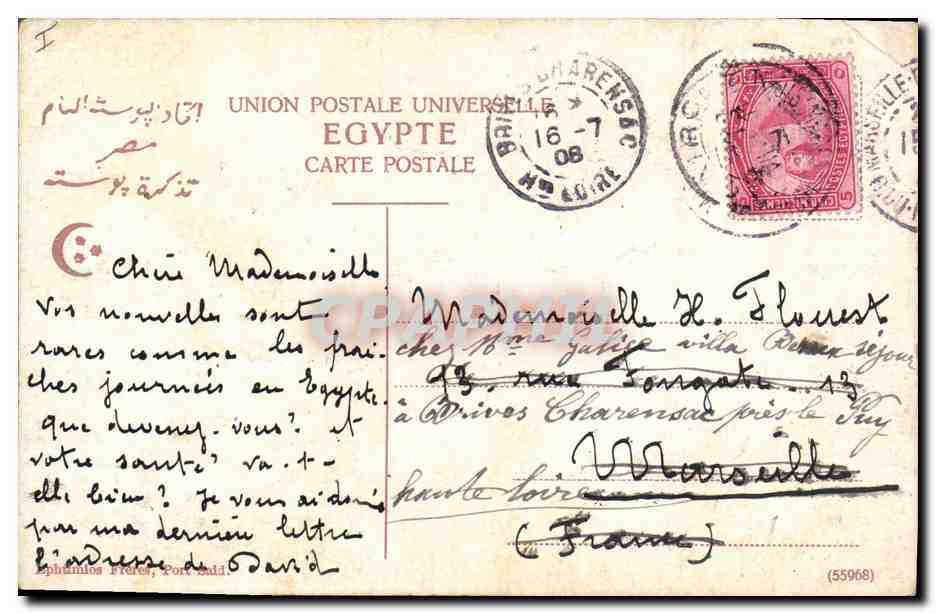 I
اتحاد پوستة العام
مصر
تذكرة پوستة
UNION POSTALE UNIVERSELLE
EGYPTE
CARTE POSTALE
BRIVES-CHARENSAC
16 -7
08
Hte LOIRE
MARSEILLE
15
POSTES EGYPTIENNES
5
Chère Mademoiselle
vos nouvelles sont
rares comme les fraî-
ches journées en Egypte.
que devenez-vous? et
votre santé va-t-
elle bien? Je vous ai donné
par ma dernière lettre
l'adresse de David
Mademoiselle H. Flourest
chez Mme Galice villa Beau séjour
13. rue Fongate. 13
à Brives Charensac près le Puy
Marseille
haute Loire
(France)
Ephtimios Frères, Port Said.
(55968)
CPARAMA